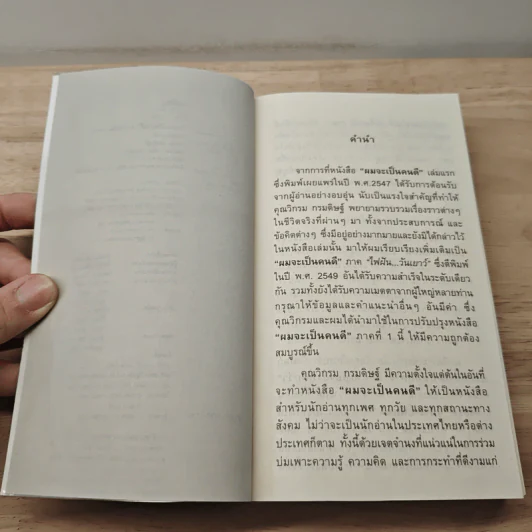 คำนำ
จากการที่หนังสือ "ผมจะเป็นคนดี" เล่มแรก
ซึ่งพิมพ์เผยแพร่ในปี พ.ศ.2547 ได้รับการต้อนรับ
จากผู้อ่านอย่างอบอุ่น นับเป็นแรงใจสำคัญที่ทำให้
คุณวิกรม กรมดิษฐ์ พยายามรวบรวมเรื่องราวต่างๆ
ในชีวิตจริงที่ผ่านๆ มา ทั้งจากประสบการณ์ และ
ข้อคิดต่างๆ ซึ่งมีอยู่อย่างมากมายและยังมิได้กล่าวไว้
ในหนังสือเล่มนั้น มาให้ผมเรียบเรียงเพิ่มเติมเป็น
"ผมจะเป็นคนดี" ภาค "ไฟฝัน...วันเยาว์" ซึ่งตีพิมพ์
ในปี พ.ศ. 2549 อันได้รับความสำเร็จในระดับเดียว
กัน รวมทั้งยังได้รับความเมตตาจากผู้ใหญ่หลายท่าน
กรุณาให้ข้อมูลและคำแนะนำอื่นๆ อันมีค่า ซึ่ง
คุณวิกรมและผมได้นำมาใช้ในการปรับปรุงหนังสือ
"ผมจะเป็นคนดี" ภาคที่ 1 นี้ ให้มีความถูกต้อง
สมบูรณ์ขึ้น
คุณวิกรม กรมดิษฐ์ มีความตั้งใจแต่ต้นในอันที่
จะทำหนังสือ "ผมจะเป็นคนดี" ให้เป็นหนังสือ
สำหรับนักอ่านทุกเพศ ทุกวัย และทุกสถานะทาง
สังคม ไม่ว่าจะเป็นนักอ่านในประเทศไทยหรือต่าง
ประเทศก็ตาม ทั้งนี้ด้วยเจตจำนงที่แน่วแน่ในการร่วม
บ่มเพาะความรู้ ความคิด และการกระทำที่ดีงามแก่